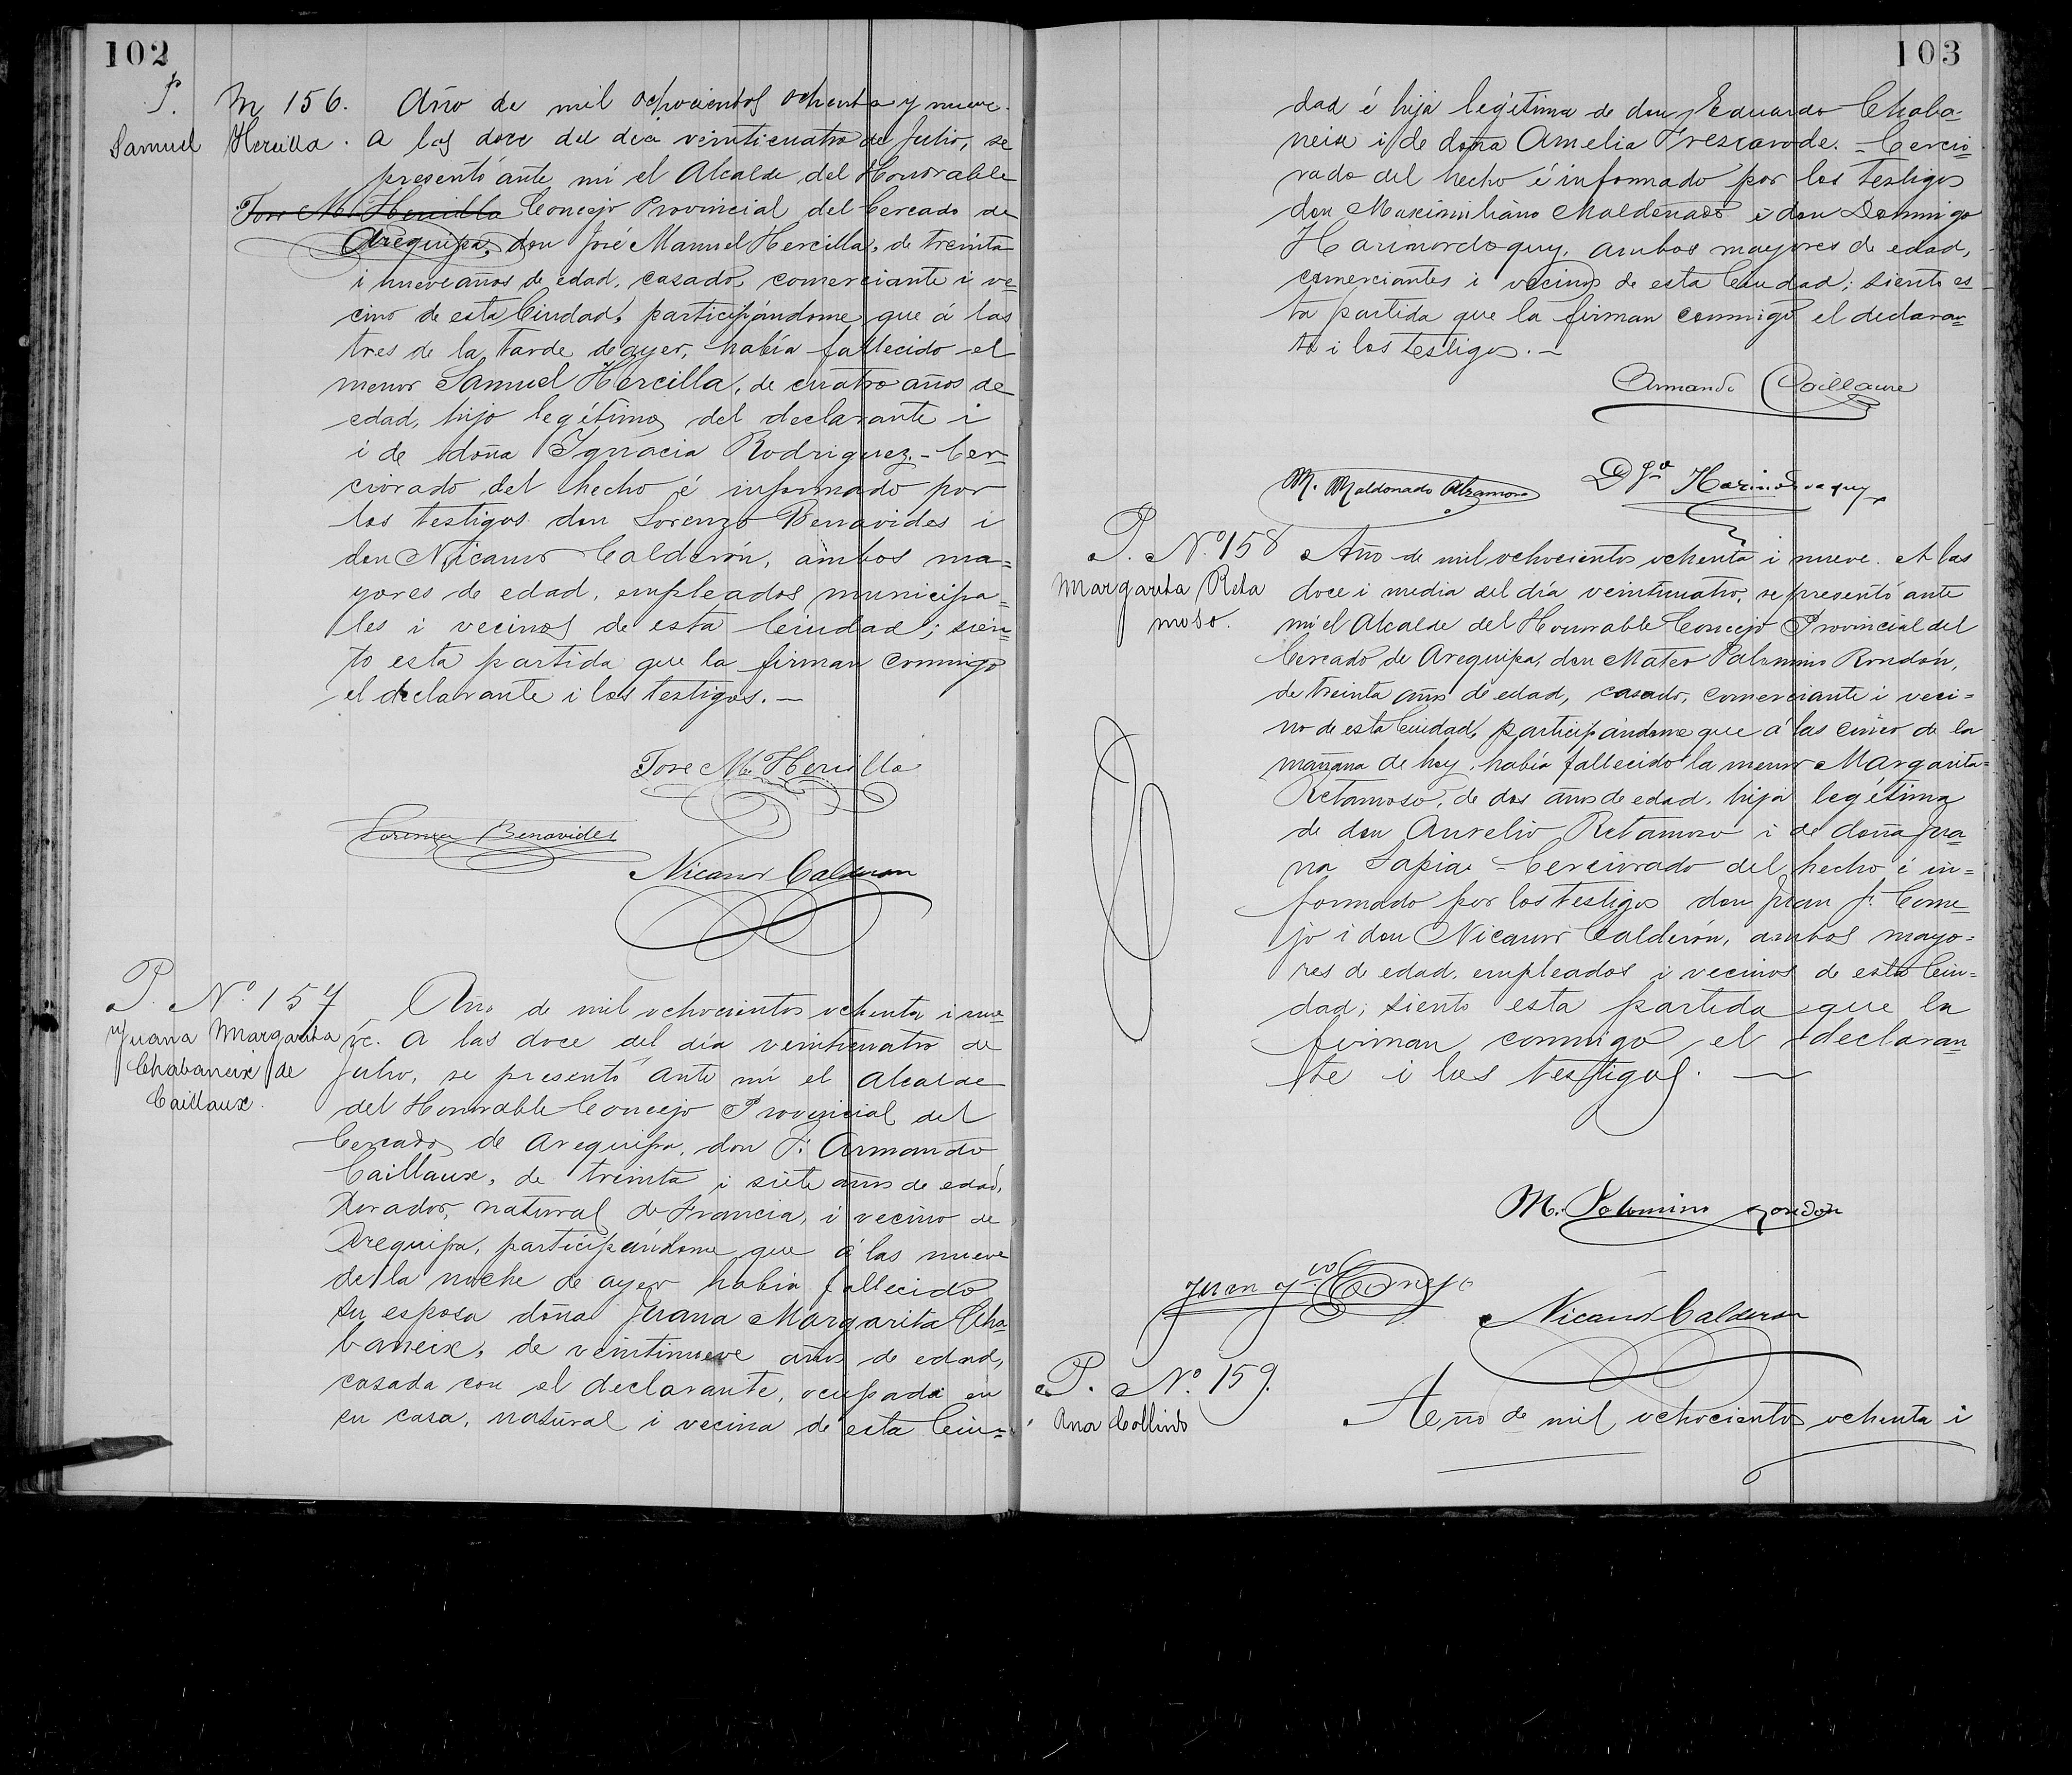 102
P. N 156. Año de mil ochocientos ochenta y nueve.
Samuel Hercilla. A las doce del dia veinticuatro de Julio, se
presentó ante mí el Alcalde del Honorable
Jose M. Hercilla Concejo Provincial del Cercado de
Arequipa, don José Manuel Hercilla, de treinta
i nueve años de edad, casado, comerciante i ve=
cino de esta Ciudad, participándome que á las
tres de la tarde de ayer, había fallecido el
menor Samuel Hercilla, de cuatro años de
edad, hijo legítimo del declarante i
i de doña Ignacia Rodriguez.- Cer=
ciorado del hecho é informado por
los testigos don Lorenzo Benavides i
don Nicanor Calderón, ambos ma=
yores de edad, empleados municipa=
les i vecinos de esta Ciudad; sien=
to esta partida que la firman conmigo
el declarante i los testigos.—
Jose M. Hercilla
Lorenzo Benavides
Nicanor Calderon
P. Nº 157
Juana Margarita
Chabaneix de
Caillaux.
Año de mil ochocientos ochenta i nue=
ve. A las doce del día veinticuatro de
Julio, se presentó ante mí el Alcalde
del Honorable Concejo Provincial del
Cercado de Arequipa, don F. Armando
Caillaux, de treinta i siete años de edad,
Dorador, natural de Francia, i vecino de
Arequipa, participándome que á las nueve
de la noche de ayer había fallecido
su esposa doña Juana Margarita Cha=
baneix, de veintinueve años de edad,
casada con el declarante, ocupada en
su casa, natural i vecina de esta Ciu=
103
dad é hija legítima de don Eduardo Chaba=
neix i de doña Amelia Trescarode.- Cercio=
rado del hecho é informado por los testigos
don Maximiliano Maldonado i don Domingo
Harimordoquy, ambos mayores de edad,
comerciantes i vecinos de esta Ciudad; siento es=
ta partida que la firman conmigo el declaran=
te i los testigos.—
Armando Caillaux
M. Maldonado Alzamora
Dgo Harimordoquy
P. N.º 158
Margarita Reta
moso.
Año de mil ochocientos ochenta i nueve. A las
doce i media del día veinticuatro, se presentó ante
mí el Alcalde del Honorable Concejo Provincial del
Cercado de Arequipa, don Mateo Palomino Rondón,
de treinta años de edad, casado, comerciante i veci=
no de esta Ciudad, participándome que á las cinco de la
mañana de hoy, había fallecido la menor Margarita=
Retamoso, de dos años de edad, hija legítima
de don Aurelio Retamoso i de doña Jua=
na Tapia.- Cerciorado del hecho é in=
formado por los testigos don Juan F. Corne=
jo i don Nicanor Calderón, ambos mayo=
res de edad, empleados i vecinos de esta Ciu=
dad; siento esta partida que la
firman conmigo el declaran=
te i los testigos.—
M. Palomino Rondón
Juan Cornejo
Nicanor Calderon
P. Nº. 159.
Ana Collind
Año de mil ochocientos ochenta i